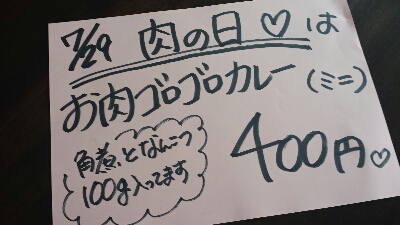 7/29 肉の日♡は
お肉ゴロゴロカレー(ミニ)
角煮、となんこつ
100g入ってます
400円♡